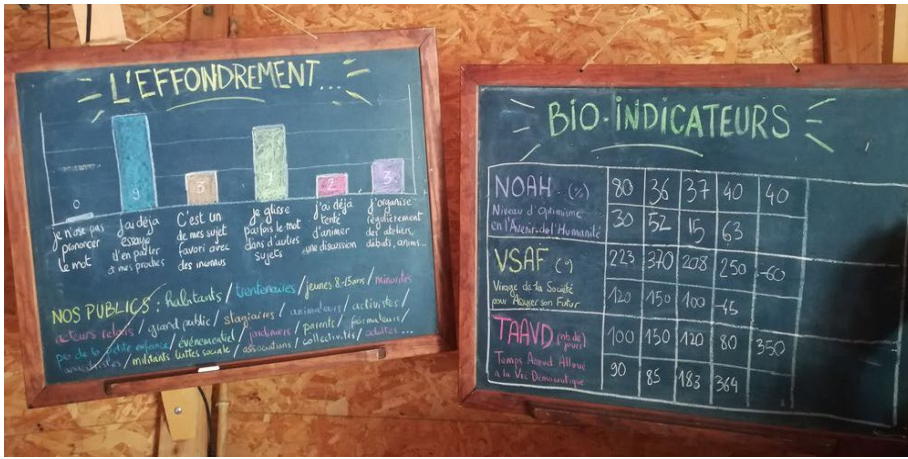 L'EFFONDREMENT...
0 9 3 7 2 3
je n'ose pas
prononcer
le mot
j'ai déjà
essayé
d'en parler
à mes proches
C'est un
de mes sujet
favori avec
des inconnus
je glisse
parfois le mot
dans d'autres
sujets
j'ai déjà
tenté
d'animer
une discussion
j'organise
régulièrement
des ateliers,
débats, anims...
NOS PUBLICS : habitants / trentenaires / jeunes 8-15ans / minorités
acteurs relais / grand public / stagiaires / animateurs / activistes /
pro de la petite enfance / événementiel / jardiniers / parents / formateurs /
militants luttes sociale / associations / collectivités / adultes...
BIO-INDICATEURS
NOAH (%) 80 36 37 40 40
Niveau d'Optimisme
en l'Avenir de l'Humanité 30 52 15 63
VSAF (°) 223 370 208 250 -60
Virage de la Société
pour Assurer son Futur 120 150 100 -45
TAAVD (nb de jours) 100 150 120 80 350
Temps Annuel Alloué
à la Vie Démocratique 90 85 183 364